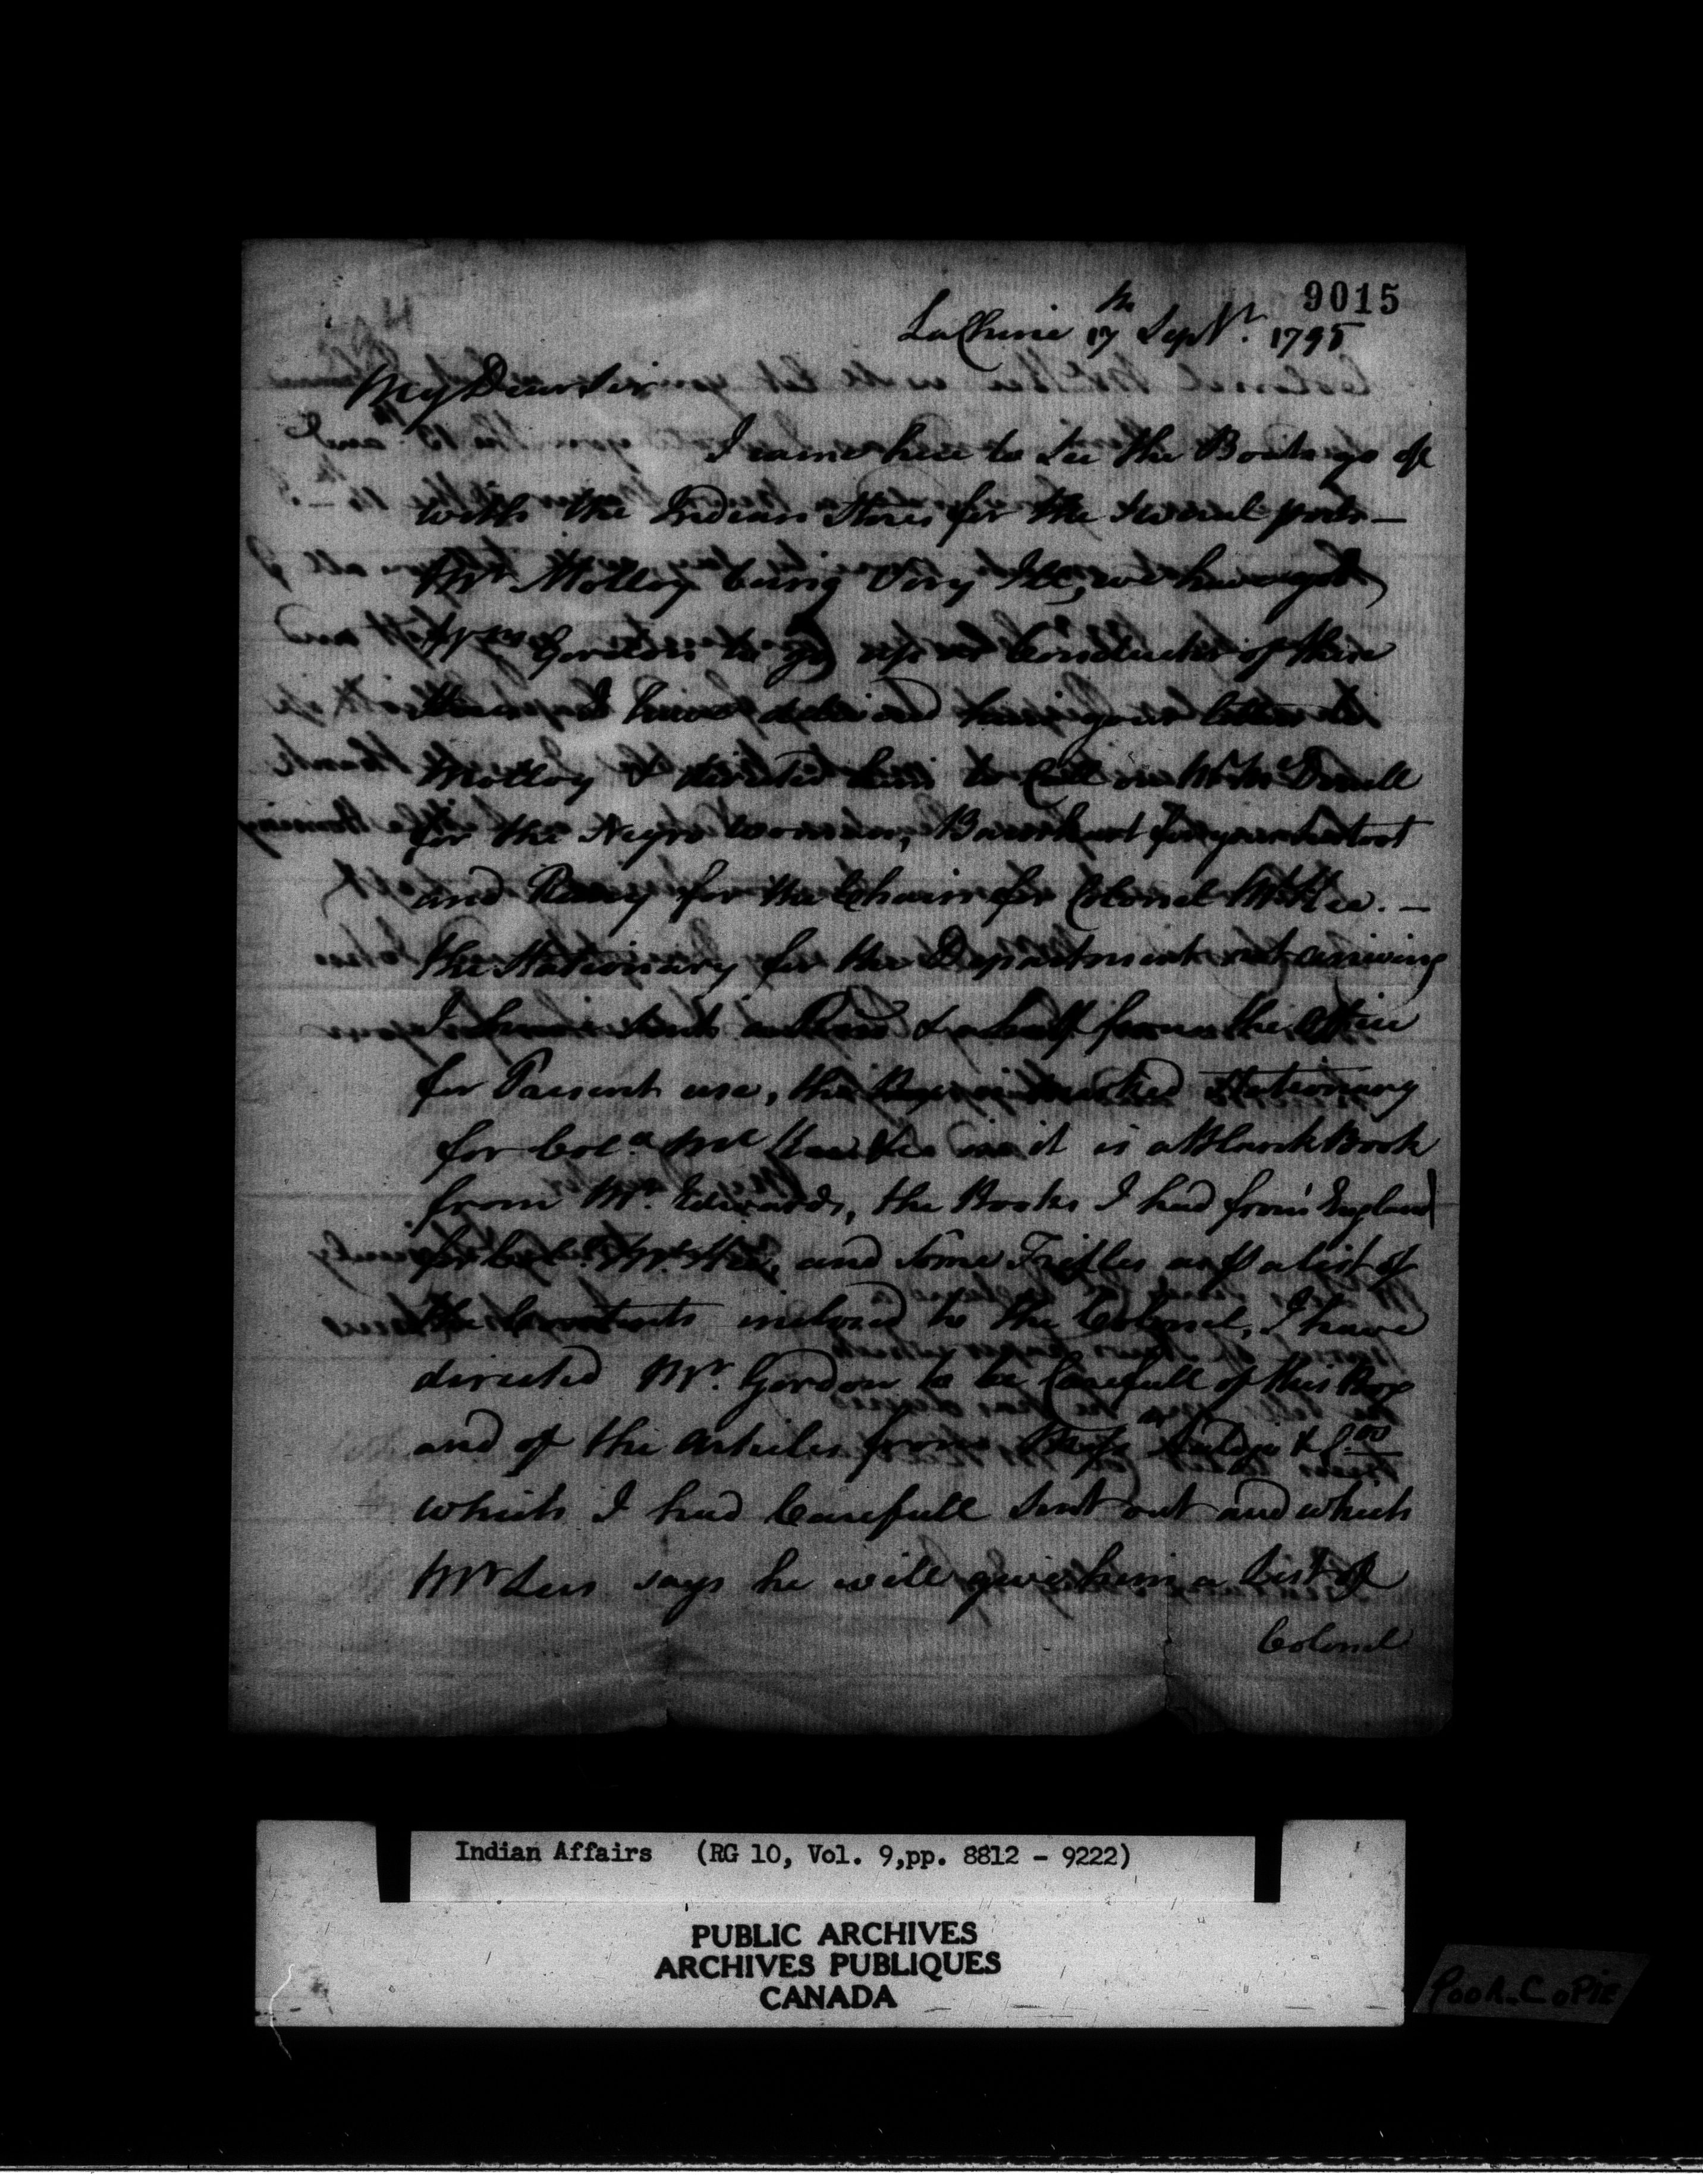 9015
LaChine 17th Septr. 1795
My Dear Sir
I came here to See the Boats go off
with the Indian Stores for the several posts —
Mr Molloy being Very Ill, we have got
Mr Gordon to go up as Conductor of them
I have delivered him your letter to
Molloy & directed him to Call on Mr Mc Donell
for the Negro woman,
and for the Chain for Colonel McKee. —
The Stationary for the Department not arriving
I have sent & a half from the Office
for Present use, the Box is marked Stationary
for Col. McKee in it is a Blank Book
from Mr. Edwards, the Books I had from England
for Col. McKee, and Some Trifles as p a list of
the Contents inclosed to the Colonel, I have
directed Mr. Gordon to be Carefull of this Box
and of the Articles from
which I had Carefull Sent out and which
Mr Lees says he will give him a List of
Colonel
Indian Affairs (RG 10, Vol. 9,pp. 8812 - 9222)
PUBLIC ARCHIVES
ARCHIVES PUBLIQUES
CANADA
Poor Copie